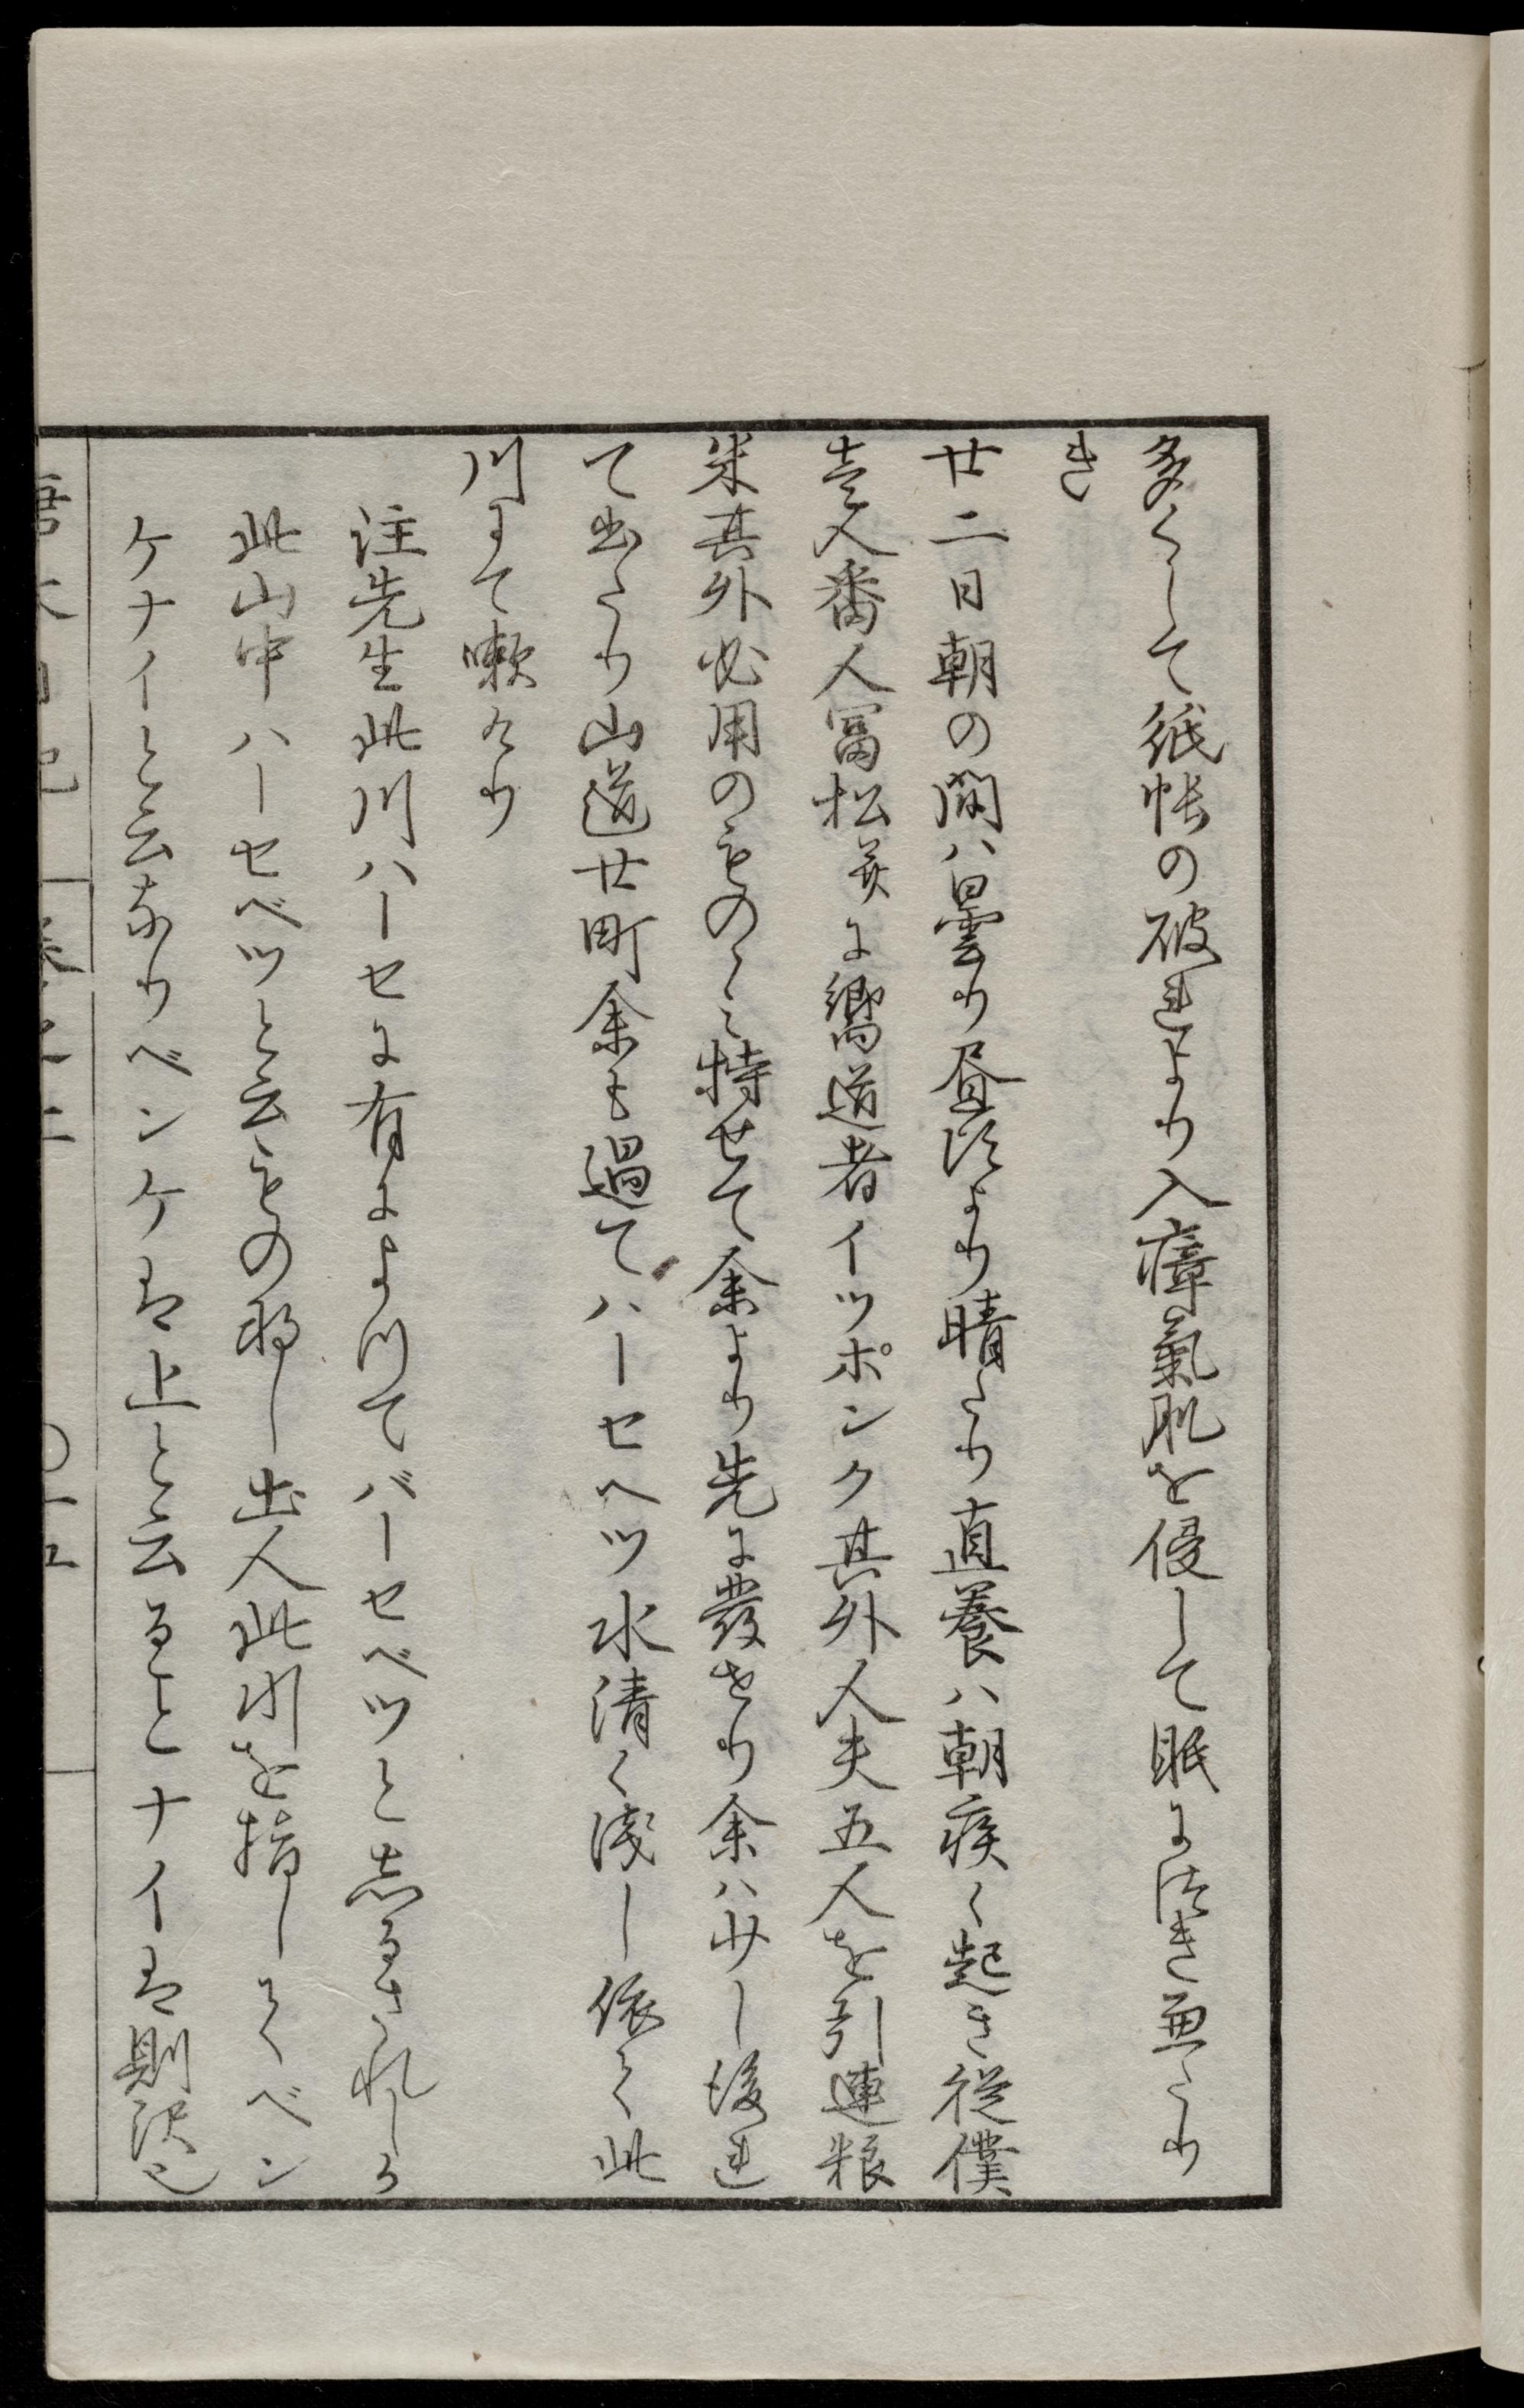 多くして紙帳の破れより入瘴氣肌を侵して眠につき兼たり
き
廿二日朝の間ハ曇り昼頃より晴たり直養ハ朝疾く起き従僕
壱人番人冨松并に嚮道者イツポンク其外人夫五人を引連粮
米其外必用のものゝミ持せて余より先に發せり余ハ少し後れ
て出たり山道廿町余も過てハーセヘツ水清く浅し依て此
川にて嗽ケり
注先生此川ハーセに有によつてバーセベツと志るされしか
此山中ハーセベツと云もの那し土人此川を指してベン
ケナイと云なりベンケは上と云ことナイは則沢也